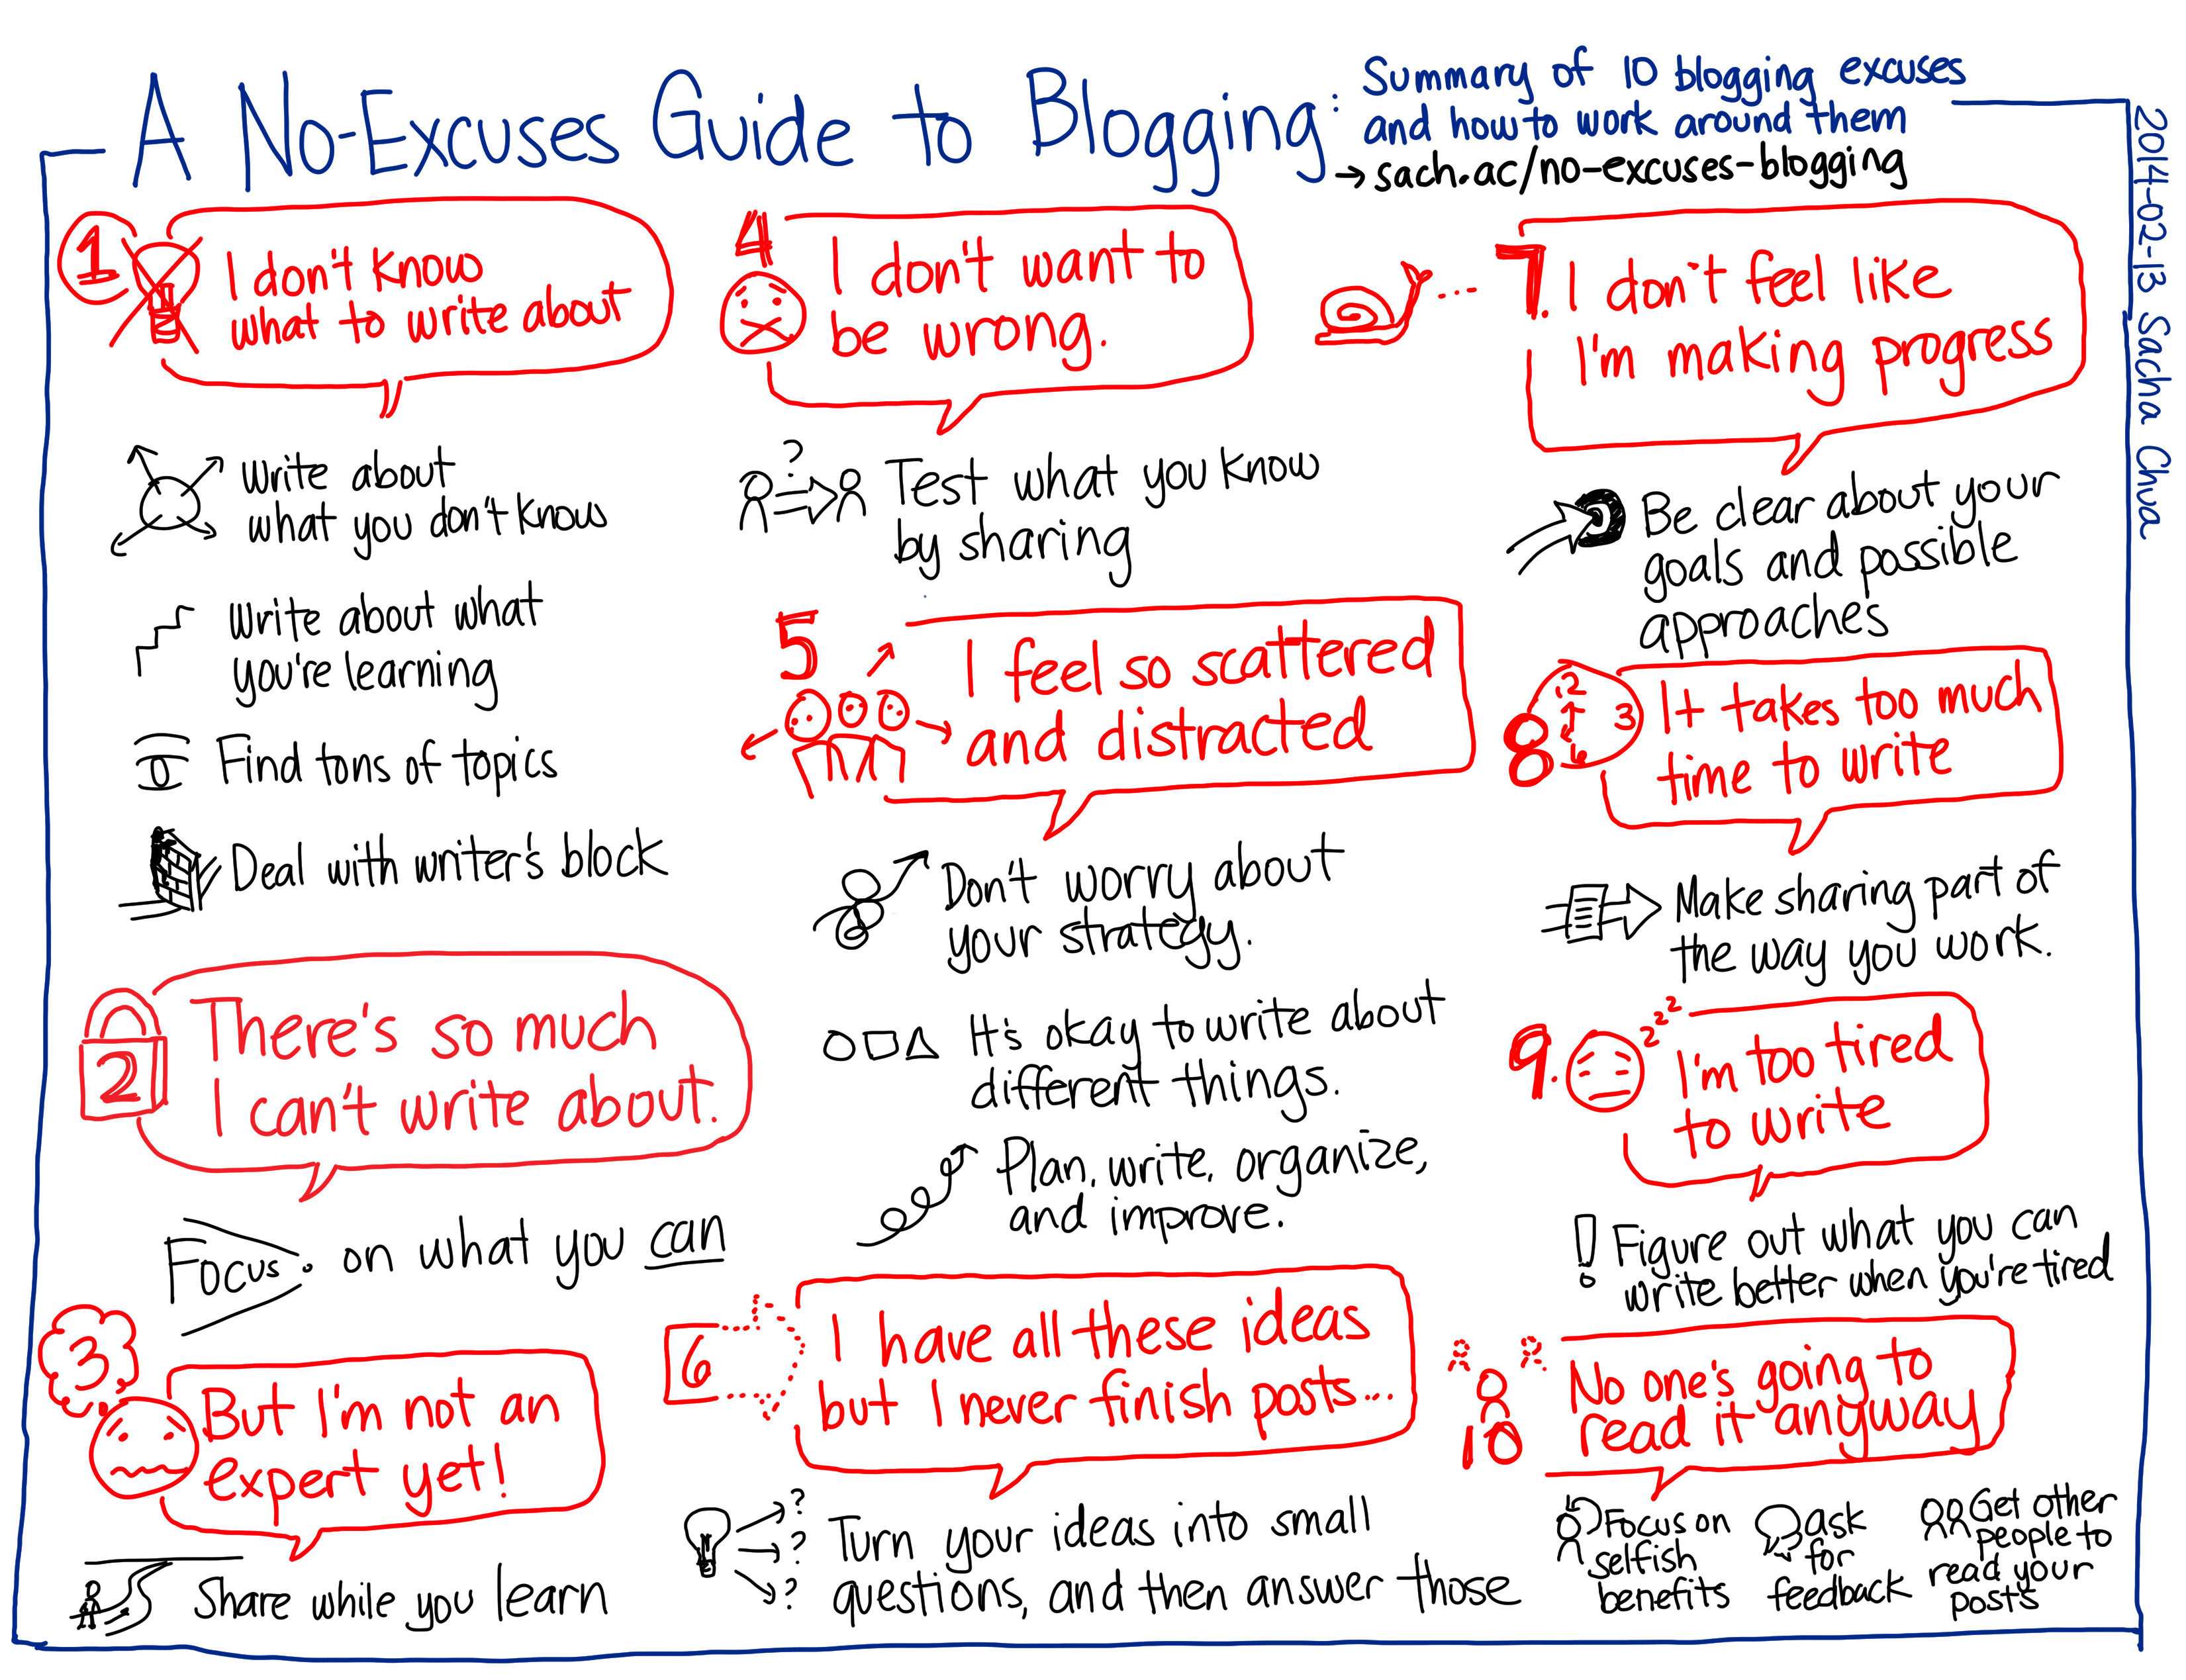 A No-Excuses Guide to Blogging:
Summary of 10 blogging excuses
and how to work around them
→ sach.ac/no-excuses-blogging
2014-02-13 Sacha Chua
1
I don't know
what to write about
Write about
what you don't know
Write about what
you're learning
Find tons of topics
Deal with writer's block
2
There's so much
I can't write about.
Focus on what you can
3
But I'm not an
expert yet!
Share while you learn
4
I don't want to
be wrong.
?
Test what you know
by sharing
5
I feel so scattered
and distracted
Don't worry about
your strategy.
It's okay to write about
different things.
Plan, write, organize,
and improve.
6
I have all these ideas
but I never finish posts...
?
?
?
Turn your ideas into small
questions, and then answer those
7. I don't feel like
I'm making progress
Be clear about your
goals and possible
approaches
8
12
3
6
It takes too much
time to write
Make sharing part of
the way you work.
9.
zzz
I'm too tired
to write
! Figure out what you can
write better when you're tired
10
No one's going to
read it anyway
Focus on
selfish
benefits
ask
for
feedback
Get other
people to
read your
posts